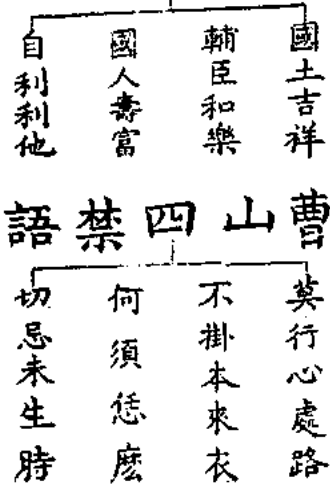 國土吉祥
輔臣和樂
國人壽富
自利利他
曹山四禁語
莫行心處路
不掛本來衣
何須恁麽
切忌未生時